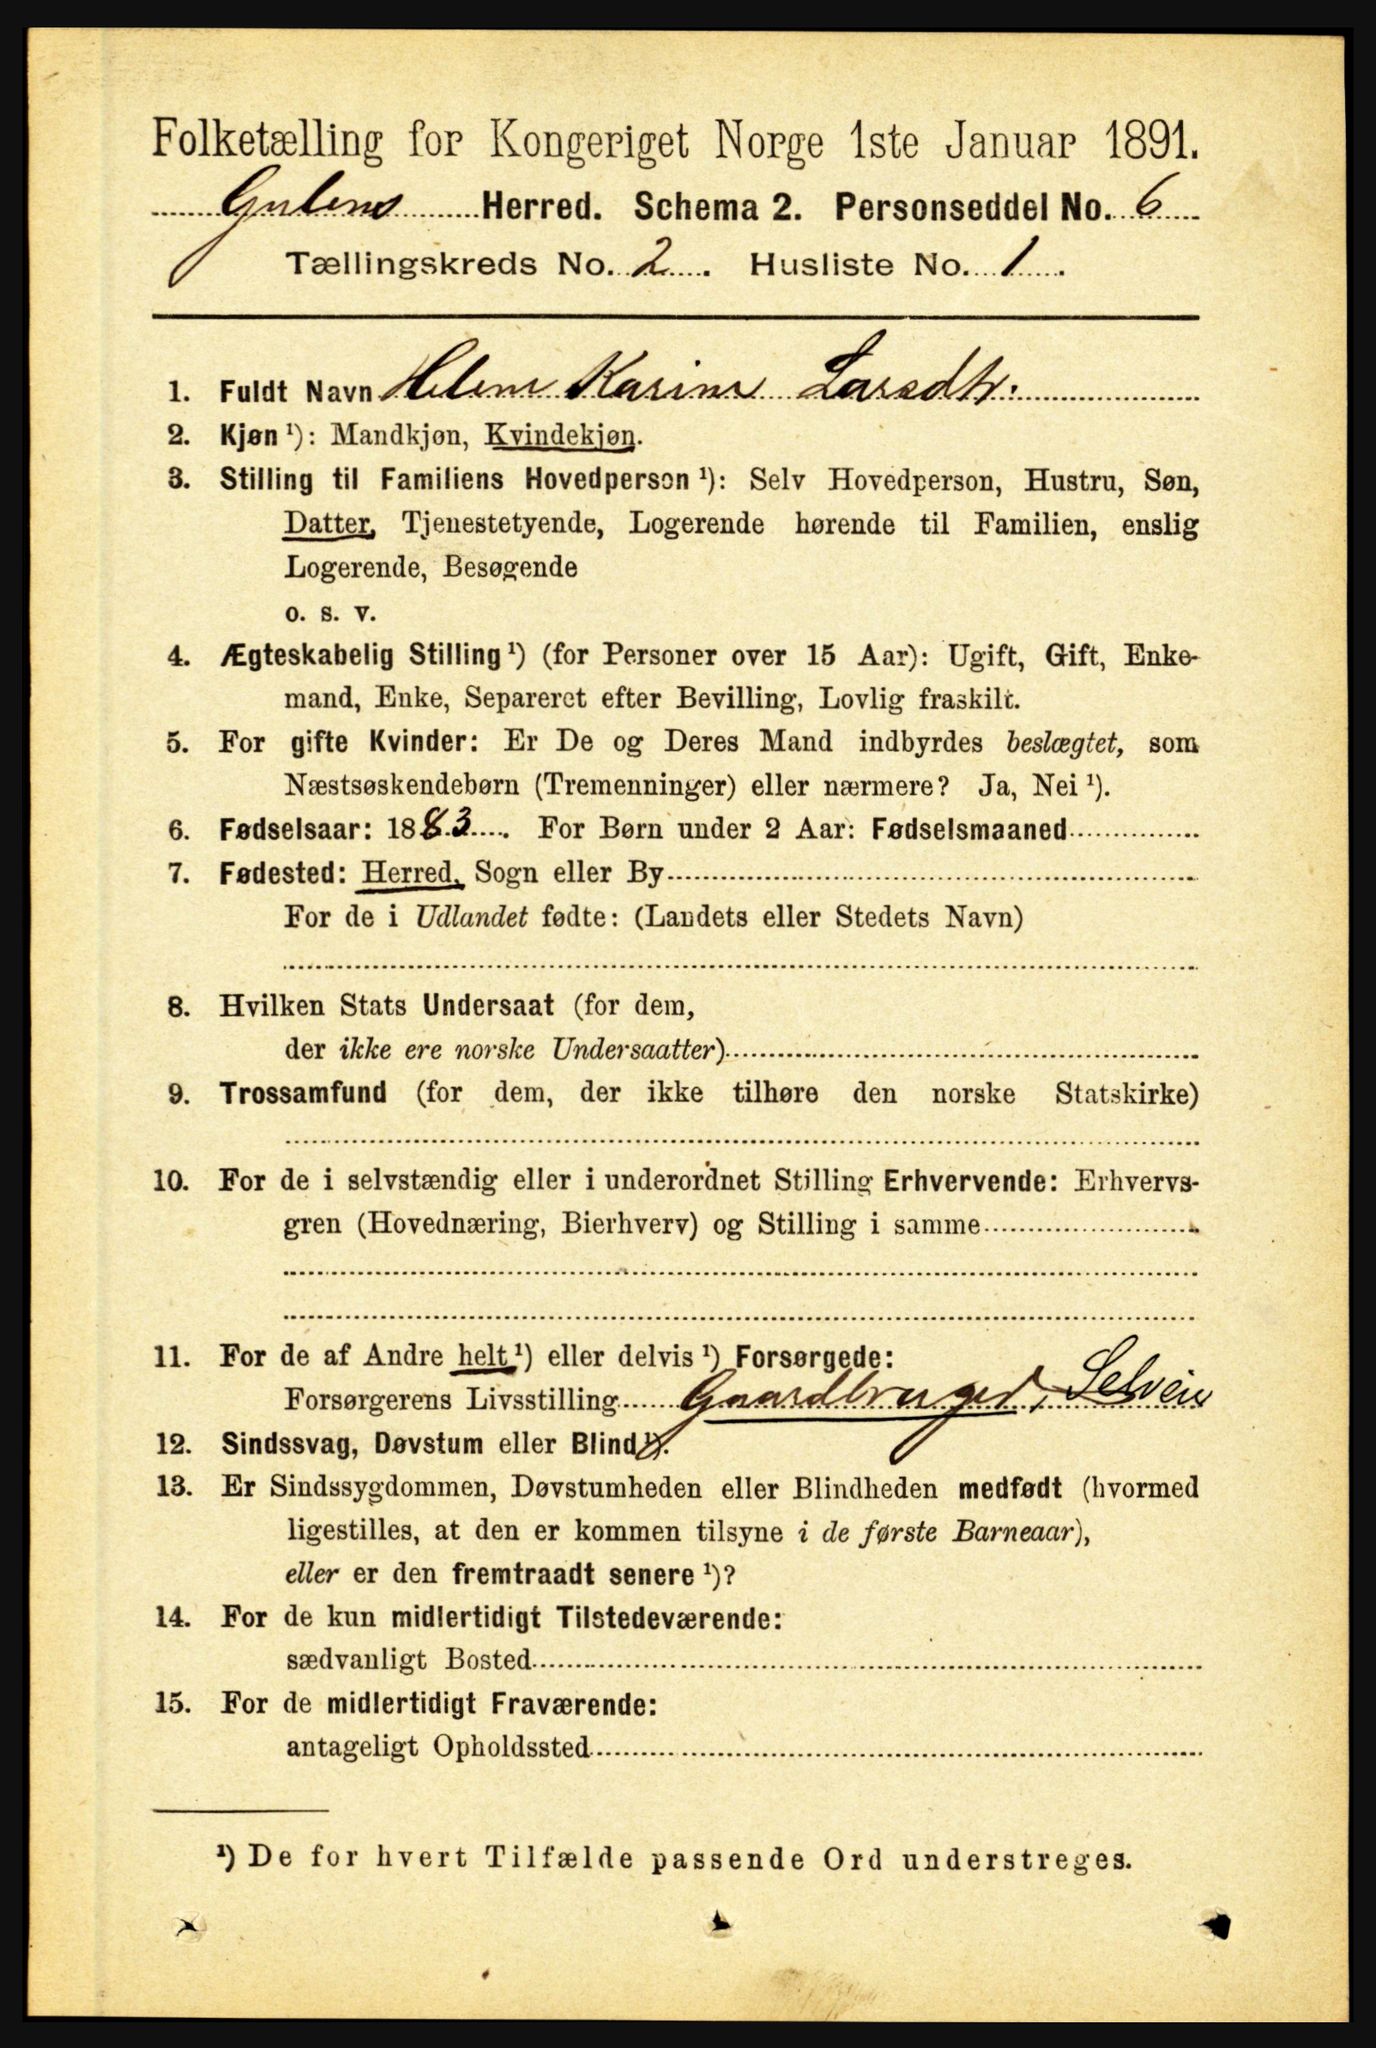 Folketælling for Kongeriget Norge 1ste Januar 1891.
Gulens Herred. Schema 2. Personseddel No. 6
Tællingskreds No. 2. Husliste No. 1.
1. Fuldt Navn Helene Karine Larsdtr.
2. Kjøn ¹): Mandkjøn, Kvindekjøn.
3. Stilling til Familiens Hovedperson ¹): Selv Hovedperson, Hustru, Søn,
Datter, Tjenestetyende, Logerende hørende til Familien, enslig
Logerende, Besøgende
o. s. v.
4. Ægteskabelig Stilling ¹) (for Personer over 15 Aar): Ugift, Gift, Enke-
mand, Enke, Separeret efter Bevilling, Lovlig fraskilt.
5. For gifte Kvinder: Er De og Deres Mand indbyrdes beslægtet, som
Næstsøskendebørn (Tremenninger) eller nærmere? Ja, Nei ¹).
6. Fødselsaar: 1883. For Børn under 2 Aar: Fødselsmaaned
7. Fødested: Herred, Sogn eller By
For de i Udlandet fødte: (Landets eller Stedets Navn)
8. Hvilken Stats Undersaat (for dem,
der ikke ere norske Undersaatter)
9. Trossamfund (for dem, der ikke tilhøre den norske Statskirke)
10. For de i selvstændig eller i underordnet Stilling Erhvervende: Erhvervs-
gren (Hovednæring, Bierhverv) og Stilling i samme
11. For de af Andre helt ¹) eller delvis ¹) Forsørgede:
Forsørgerens Livsstilling Gaardbruger, Selveier
12. Sindssvag, Døvstum eller Blind ¹).
13. Er Sindssygdommen, Døvstumheden eller Blindheden medfødt (hvormed
ligestilles, at den er kommen tilsyne i de første Barneaar),
eller er den fremtraadt senere ¹)?
14. For de kun midlertidigt Tilstedeværende:
sædvanligt Bosted
15. For de midlertidigt Fraværende:
antageligt Opholdssted
¹) De for hvert Tilfælde passende Ord understreges.